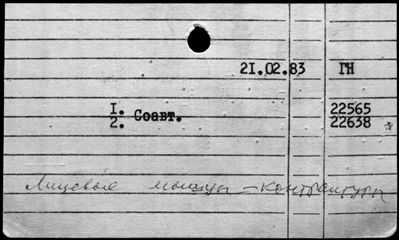 21.02.83 ГН
1. Соавт. 22565
2. 22638
Лицевые мышцы – контрактуры